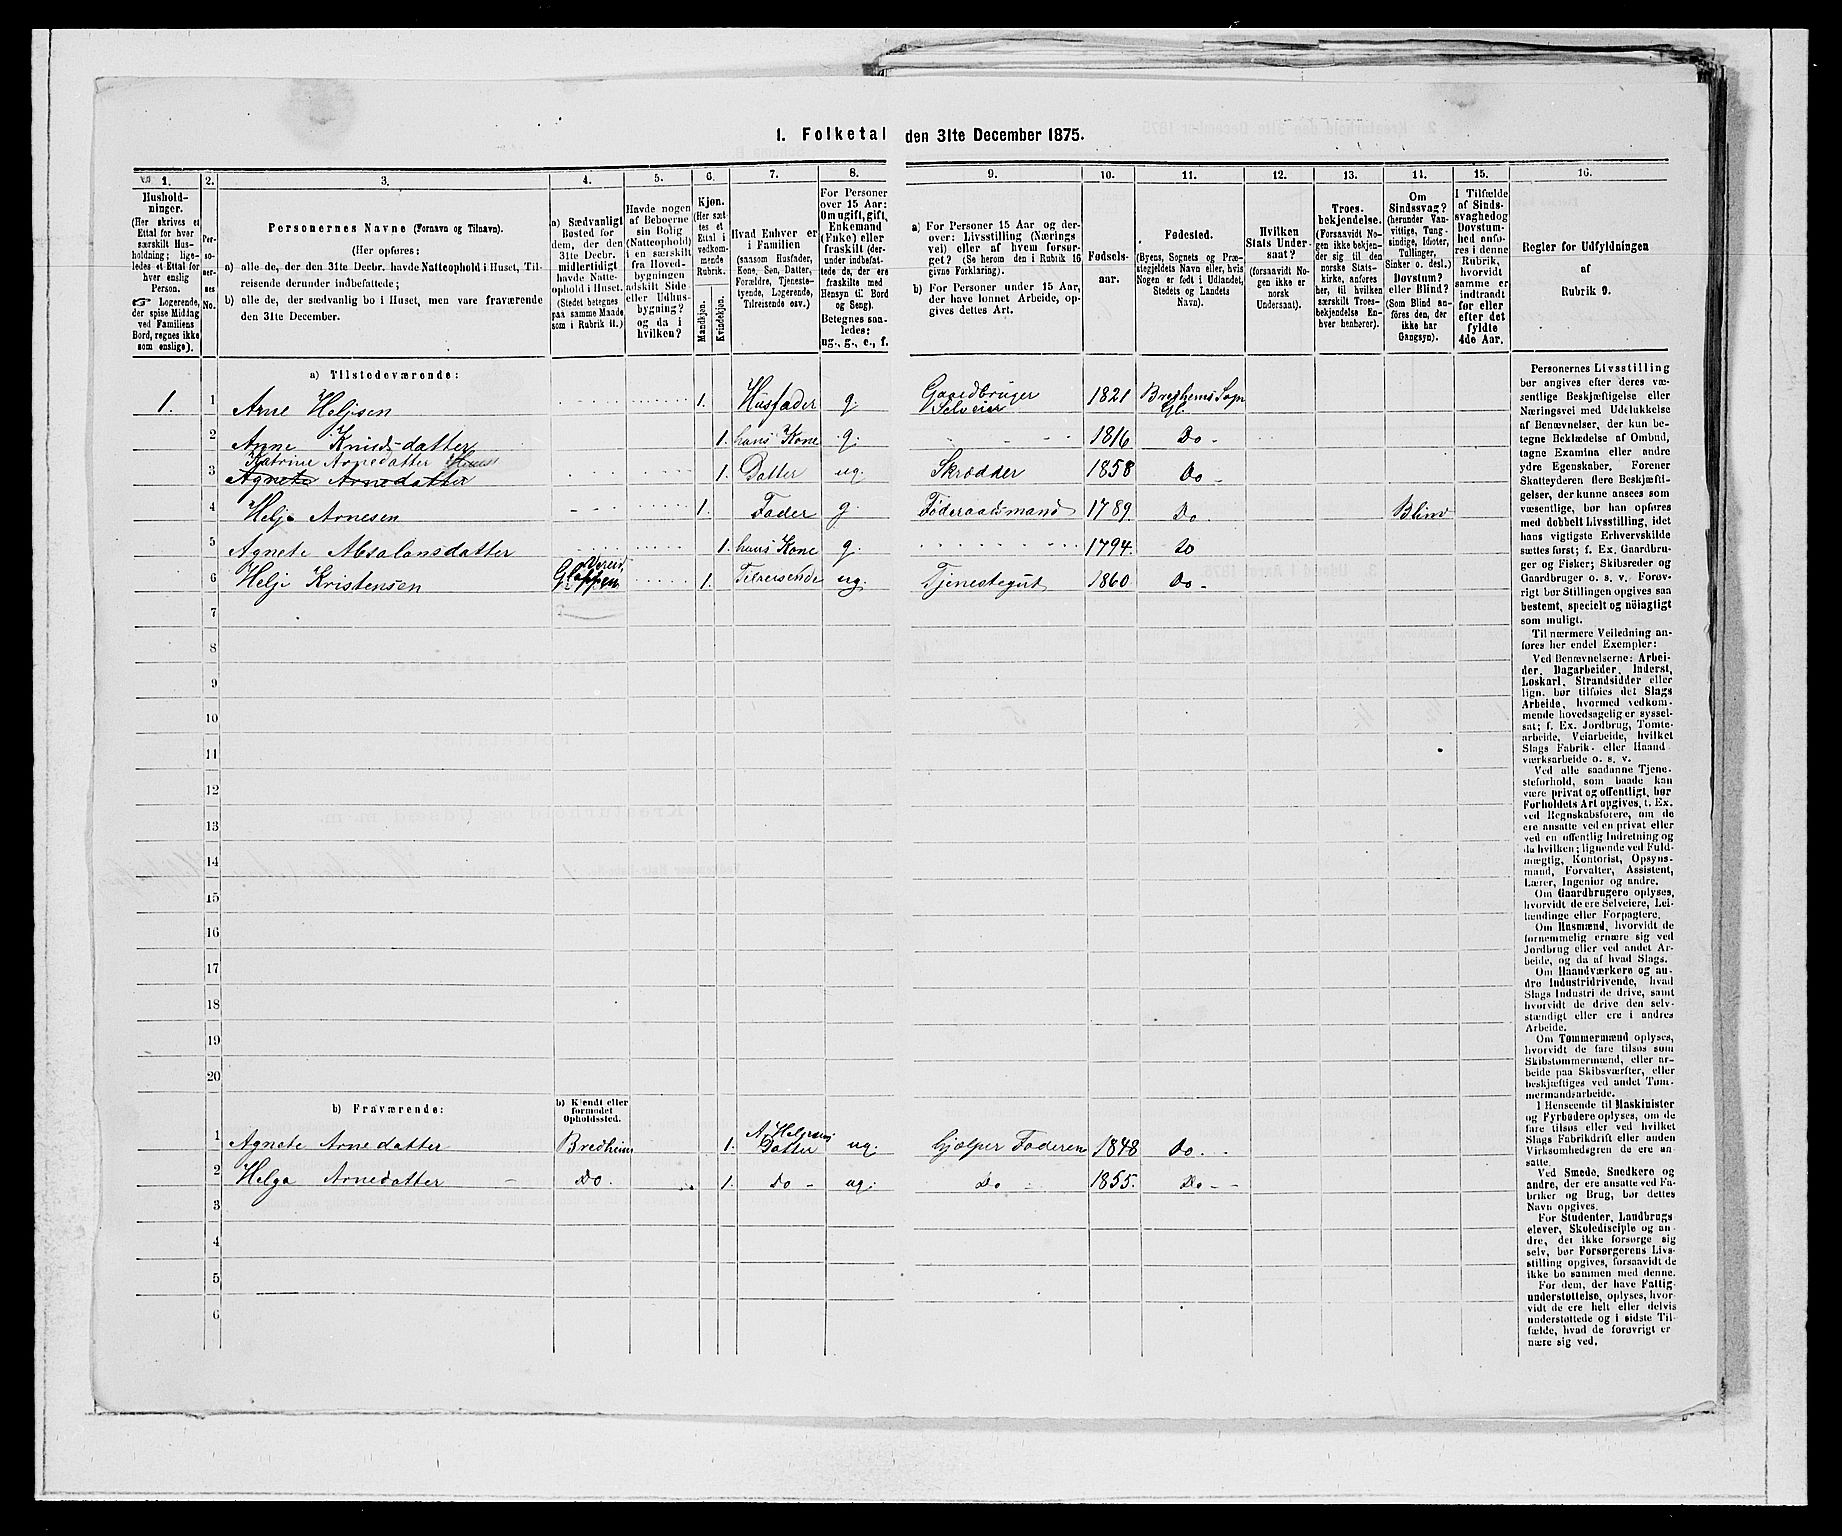 1. Folketal den 31te December 1875.
1. 2. 3. 4. 5. 6. 7. 8. 9. 10. 11. 12. 13. 14. 15. 16.
Hushold-
ninger.
(Her skrives et
Ettal for hver
særskilt Hus-
holdning; lige-
ledes et Ettal for
hver enslig
Person.
☞ Logerende,
der spise Middag
ved Familiens
Bord, regnes ikke
som enslige).
Per-
so-
ner-
nes
No.
Personernes Navne (Fornavn og Tilnavn).
(Her opføres;
a) alle de, der den 31te Decbr. havde Natteophold i Huset, Til-
reisende derunder indbefattede;
b) alle de, der sædvanlig bo i Huset, men vare fraværende
den 31te December.
a) Sædvanligt
Bosted for
dem, der den
31te Decbr.
midlertidigt
havde Natte-
ophold i Huset.
(Stedet betegnes
paa samme Maade
som i Rubrik 11.)
Havde nogen
af Beboerne
sin Bolig
(Natteophold)
i en særskilt
fra Hoved-
bygningen
adskilt Side
eller Udhus-
bygning?
og da i
hvilken?
Kjøn.
(Her sæt-
tes et
Ettal i
vedkom-
mende
Rubrik.
Mandkjøn.
Kvindekjøn.
Hvad Enhver er
i Familien
(saasom Husfader,
Kone, Søn, Datter,
Forældre, Tjeneste-
tyende, Logerende,
Tilreisende osv.)
For Personer
over 15 Aar:
Om ugift, gift,
Enkemand
(Enke) eller
fraskilt (der-
under indbefat-
tede de, der ere
fraskilte med
Hensyn til Bord
og Seng).
Betegnes saa-
ledes:
ug., g., e., f.
a) For Personer 15 Aar og der-
over: Livsstilling (Nærings
vei) eller af hvem forsør-
get? (Se herom den i Rubrik 16
givne Forklaring).
b) For Personer under 15 Aar,
der have lønnet Arbeide, op-
gives dettes Art.
Fødsels-
aar.
Fødested.
(Byens, Sognets og Præ-
stegjeldets Navn eller, hvis
Nogen er født i Udlandet,
Stedets og Landets
Navn).
Hvilken
Stats Under-
saat?
(forsaavidt No-
gen ikke er
norsk
Undersaat).
Troes-
bekjendelse.
(Forsaavidt No-
gen ikke bekjen-
der sig til den
norske Stats-
kirke, anføres
her, til hvilken
særskilt Troes-
bekjendelse En-
hver henhører).
Om
Sindssvag?
(herunder Van-
vittige, Tung-
sindige, Idioter,
Tullinger,
Sinker o. desl.)
Døvstum?
eller Blind?
(Som Blind an-
føres den, der
ikke har
Gangsyn).
I Tilfælde
af Sinds-
svaghed og
Døvstum-
hed anfø-
res i denne
Rubrik,
hvorvidt
samme er
indtraadt
før eller
efter det
fyldte
4de Aar.
Regler for Udfyldningen
af
Rubrik 9.
a) Tilstedeværende:
1. 1 Arne Heljesen 1. Husfader g. Gaardbruger Selveier 1821 Bredheims Sogn Gl.
2 Anne Knudsdatter 1. hans Kone g. 1816 Do
Katrine Arnedatter
3 Agnete Arnedatter 1. Datter ug. Skrædder 1858 Do
4 Helje Arnesen 1. Fader g. Føderaadsmand 1789. Do Blind
5 Agnete Absalonsdatter 1. hans Kone g. 1794. Do
6 Helje Kristensen Gloppen 1. Tilreisende ug. Tjenestegut 1860. Do
7
8
9
10
11
12
13
14
15
16
17
18
19
20
b) Fraværende:
b) Kjendt eller
formodet
Opholdssted.
1 Agnete Arnedatter Bredheim 1. A Heljesens Datter ug. hjælper Faderen 1848 Do
2 Helga Arnedatter Do. 1. Do ug. Do 1855. Do
3
4
5
6
Personernes Livsstilling
bør angives efter deres væ-
sentlige Beskjæftigelse eller
Næringsvei med Udelukkelse
af Benævnelser, der kun be-
tegne Beklædelse af Ombud,
tagne Examina eller andre
ydre Egenskaber. Forener
Skatteyderen flere Beskjæfti-
gelser, der kunne ansees som
væsentlige, bør han opføres
med dobbelt Livsstilling, idet
hans vigtigste Erhvervskilde
sættes først; f. Ex. Gaardbru-
ger og Fisker; Skibsreder og
Gaardbruger o. s. v. Forøv-
rigt bør Stillingen opgives saa
bestemt, specielt og nöiagtigt
som muligt.
Til nærmere Veiledning an-
føres her endel Exempler:
Ved Benævnelserne: Arbei-
der, Dagarbeider, Inderst,
Løskarl, Strandsidder eller
lign. bør tilføies det Slags
Arbeide, hvormed vedkom-
mende hovedsagelig er syssel-
sat; f. Ex. Jordbrug, Tomte-
arbeide, Veiarbeide, hvilket
Slags Fabrik- eller Haand-
værksarbeide o. s. v.
Ved alle saadanne Tjene-
steforhold, som baade kan
være privat og offentligt, bør
Forholdets Art opgives, t. Ex.
ved Regnskabsførere, om de
ere ansatte ved en privat eller
ved en offentlig Indretning og
da hvilken; lignende ved Fuld-
mægtig, Kontorist, Opsyns-
mand, Forvalter, Assistent,
Lærer, Ingeniør og andre.
Om Gaardbrugere oplyses,
hvorvidt de ere Selveiere, Lei-
lændinge eller Forpagtere.
Om Husmænd, hvorvidt de
fornemmelig ernære sig ved
Jordbrug eller ved andet Ar-
beide, og da af hvad Slags.
Om Haandværkere og an-
dre Industridrivende, hvad
Slags Industri de drive, samt
hvorvidt de drive den selv-
stændigt eller ere i andres
Arbeide.
Om Tømmermænd oplyses,
hvorvidt de fare tilsøs som
Skibstømmermænd, eller ar-
beide paa Skibsværfter, eller
beskjæftiges ved andet Tøm-
mermandsarbeide.
I Henseende til Maskinister
og Fyrbødere oplyses, om de
fare tilsøs eller ved hvilket
Slags Fabrikdrift eller anden
Virksomhedsgren de ere an-
satte.
Ved Smede, Snedkere og
andre, der ere ansatte ved Fa-
briker og Brug, bør dettes
Navn opgives.
For Studenter, Landbrugs
elever, Skoledisciple og an-
dre, der ikke forsørge sig
selv, bør Forsørgerens Livs-
stilling opgives, forsaavidt de
ikke bo sammen med denne.
For dem, der have Fattig-
understøttelse, oplyses, hvor-
vidt de ere helt eller delvis
understøttede og i sidste Til-
fælde, hvad de forøvrigt er
nære sig ved.